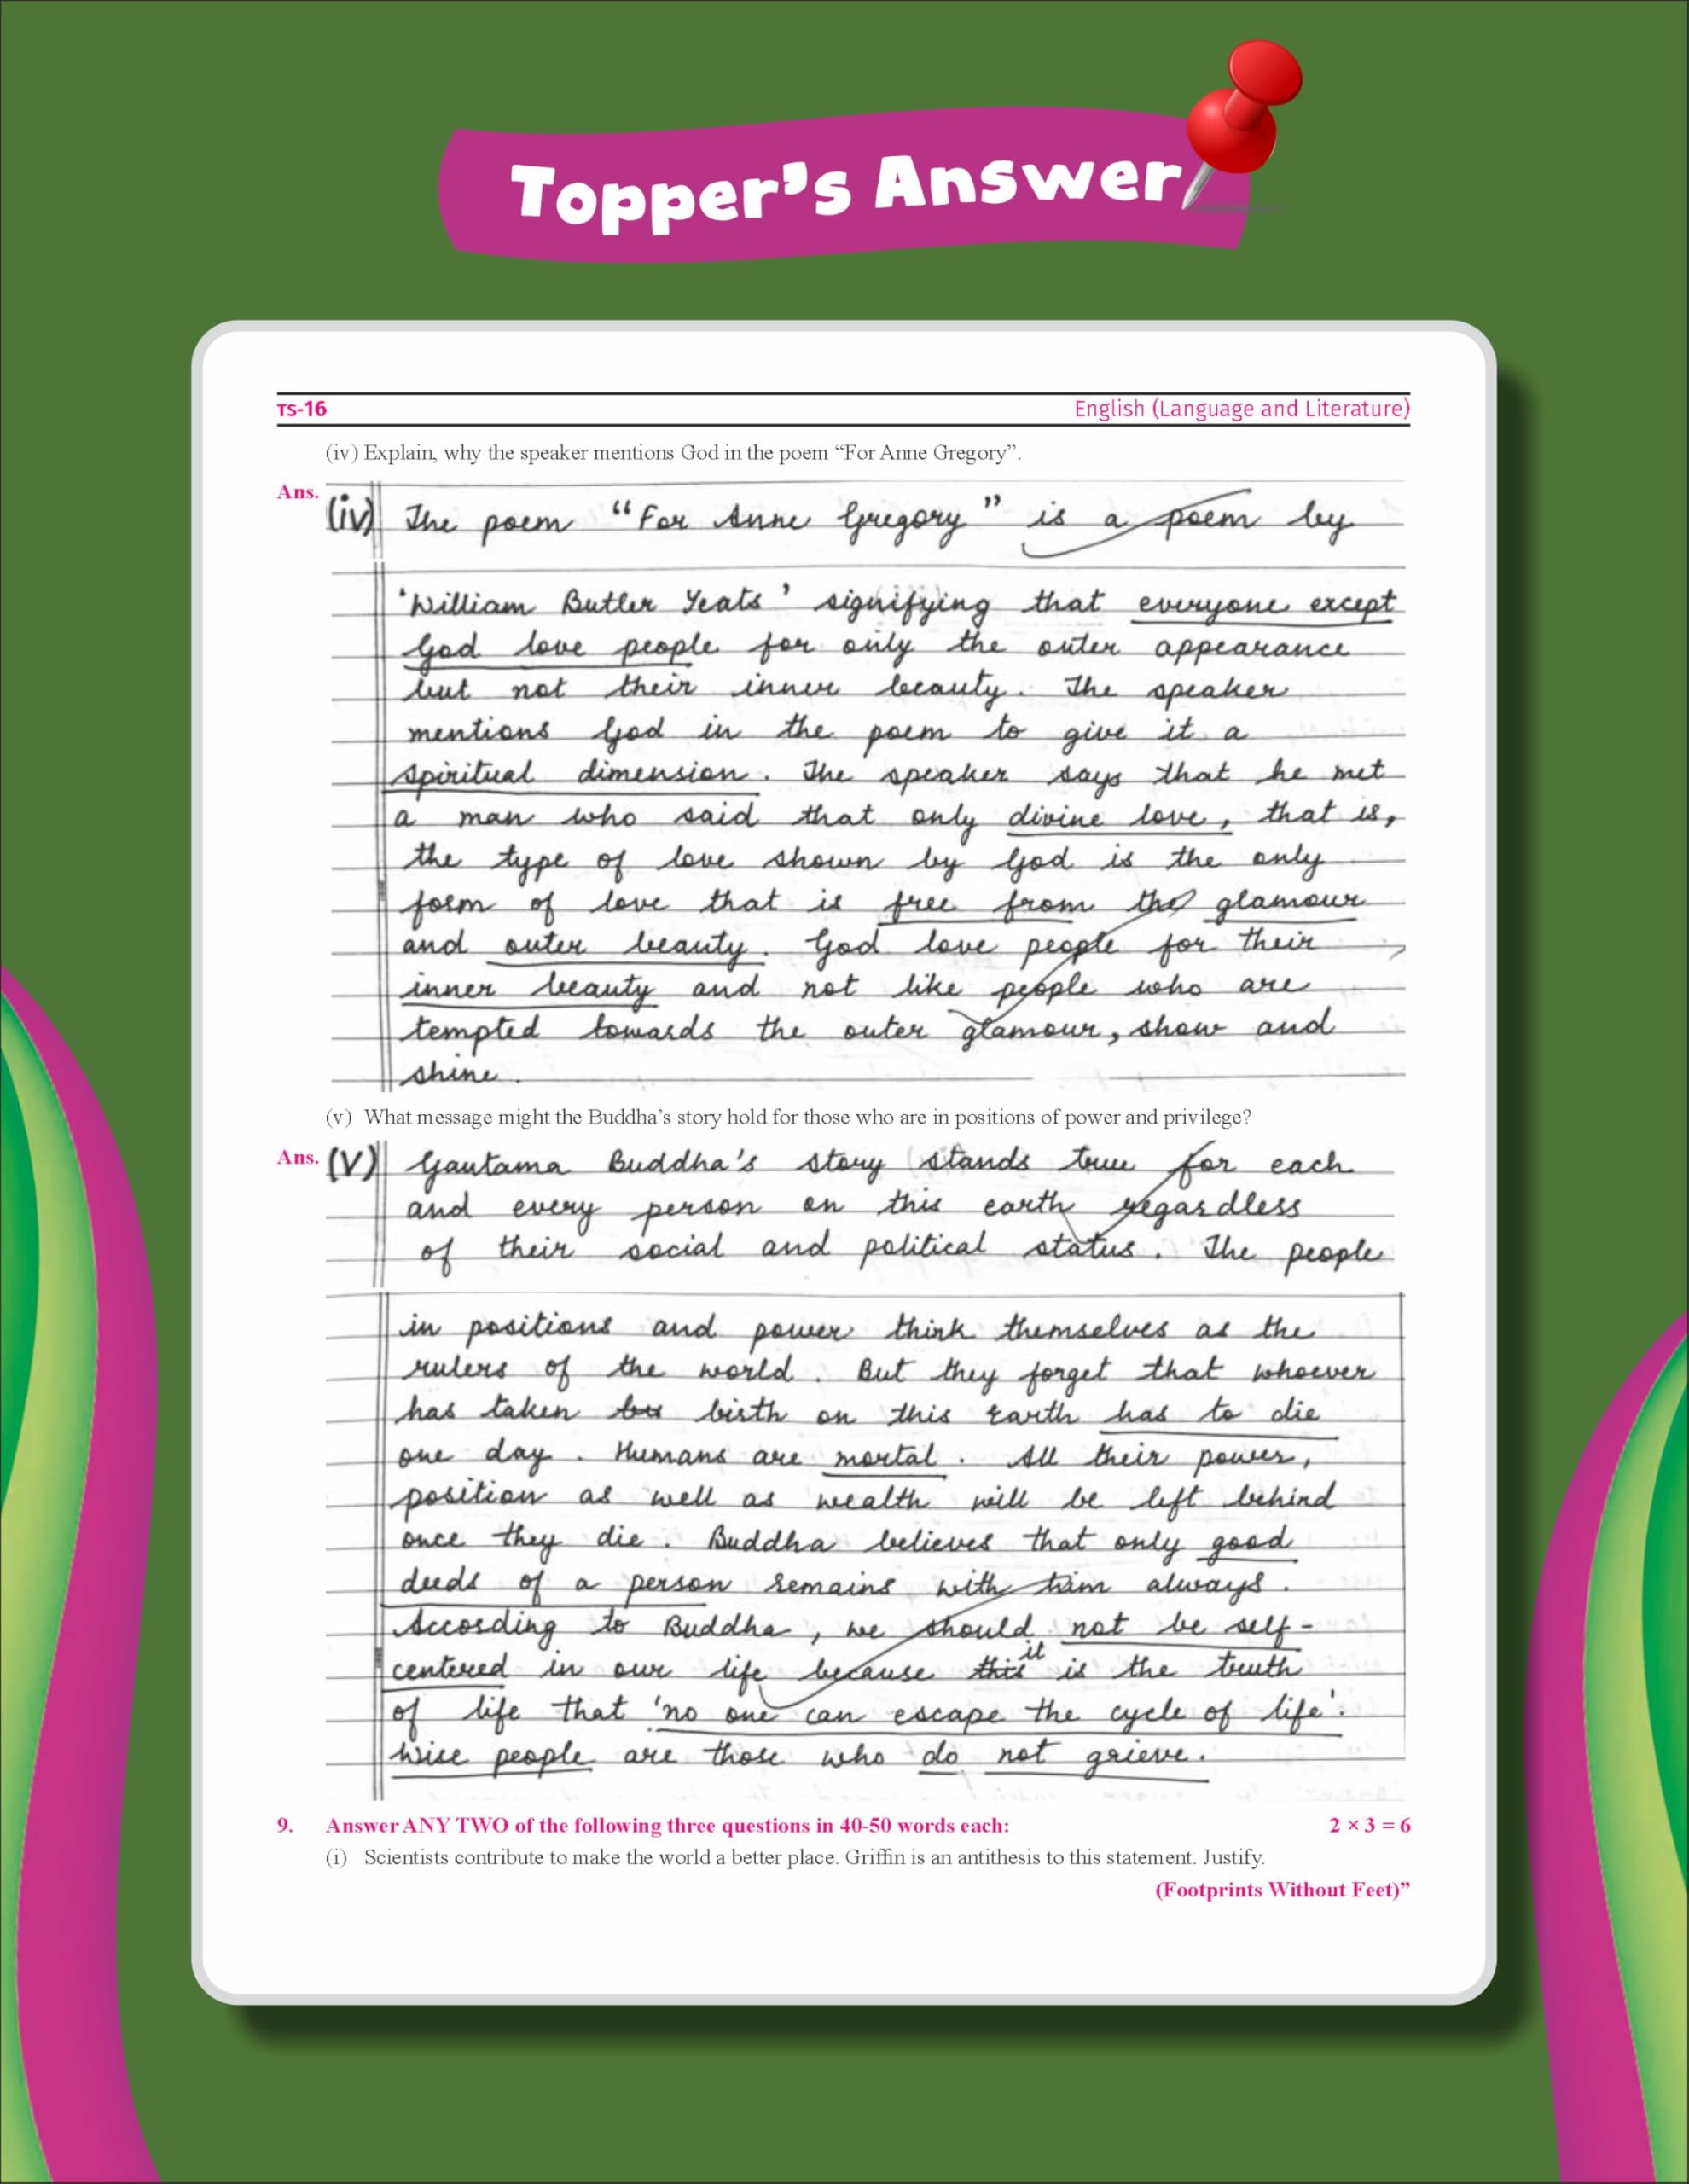 Topper's Answer
TS-16 English (Language and Literature)
(iv) Explain, why the speaker mentions God in the poem “For Anne Gregory”.
Ans. (iv) The poem “For Anne Gregory” is a poem by
'William Butler Yeats' signifying that everyone except
God love people for only the outer appearance
but not their inner beauty. The speaker
mentions God in the poem to give it a
spiritual dimension. The speaker says that he met
a man who said that only divine love, that is,
the type of love shown by God is the only
form of love that is free from the glamour
and outer beauty. God love people for their
inner beauty and not like people who are
tempted towards the outer glamour, show and
shine.
(v) What message might the Buddha’s story hold for those who are in positions of power and privilege?
Ans. (V) Gautama Buddha's story stands true for each
and every person on this earth regardless
of their social and political status. The people
in positions and power think themselves as the
rulers of the world. But they forget that whoever
has taken birth on this earth has to die
one day. Humans are mortal. All their power,
position as well as wealth will be left behind
once they die. Buddha believes that only good
deeds of a person remains with him always.
According to Buddha, we should not be self-
centered in our life because this it is the truth
of life that 'no one can escape the cycle of life'.
Wise people are those who do not grieve.
9. Answer ANY TWO of the following three questions in 40-50 words each: 2 × 3 = 6
(i) Scientists contribute to make the world a better place. Griffin is an antithesis to this statement. Justify.
(Footprints Without Feet)”